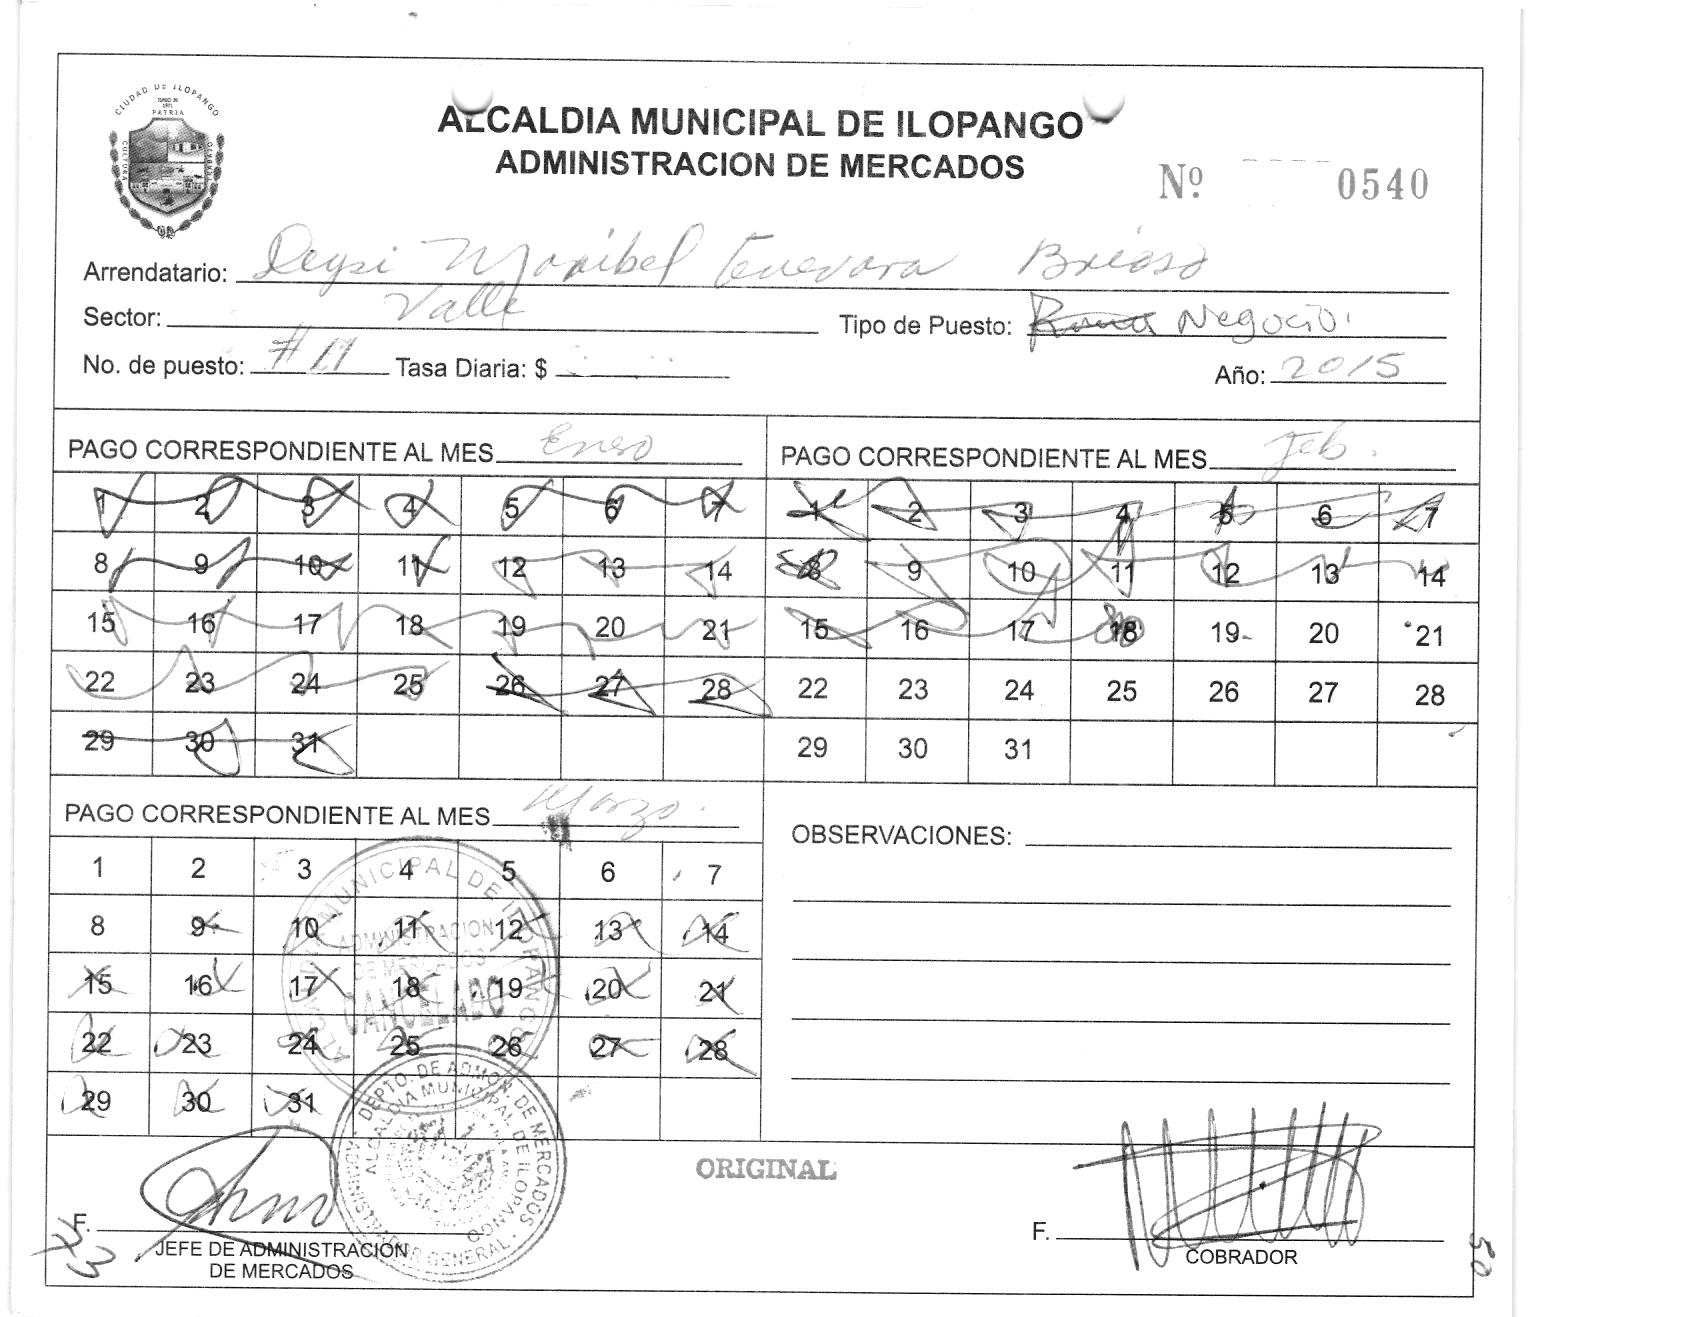 CIUDAD DE ILOPANGO
PATRIA
CULTURA
ALCALDIA MUNICIPAL DE ILOPANGO
ADMINISTRACION DE MERCADOS
Nº 0540
Arrendatario: Deysi Maribel Guevara Brioso
Sector: Valle Tipo de Puesto: Negocio.
No. de puesto: #17 Tasa Diaria: $ Año: 2015
PAGO CORRESPONDIENTE AL MES Enero
1 2 3 4 5 6 7
8 9 10 11 12 13 14
15 16 17 18 19 20 21
22 23 24 25 26 27 28
29 30 31
PAGO CORRESPONDIENTE AL MES Feb.
1 2 3 4 5 6 7
8 9 10 11 12 13 14
15 16 17 18 19 20 21
22 23 24 25 26 27 28
29 30 31
PAGO CORRESPONDIENTE AL MES Marzo.
1 2 3 4 5 6 7
8 9 10 11 12 13 14
15 16 17 18 19 20 21
22 23 24 25 26 27 28
29 30 31
ALCALDIA MUNICIPAL DE ILOPANGO
ADMINISTRACION
DE MERCADOS
CANCELADO
OBSERVACIONES:
DEPTO. DE ADMON. DE MERCADOS
ALCALDIA MUNICIPAL DE ILOPANGO
ADMINISTRADOR GENERAL
ORIGINAL
F.
JEFE DE ADMINISTRACION
DE MERCADOS
F.
COBRADOR
50